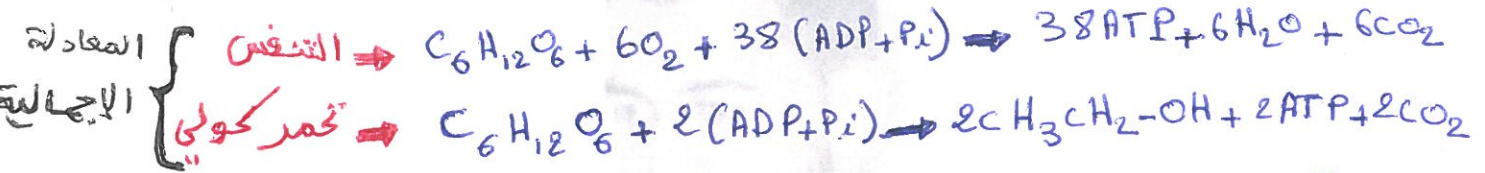 المعادلة الإجمالية
التنفس ➡ C₆H₁₂O₆ + 6O₂ + 38 (ADP+Pi) ➡ 38ATP + 6H₂O + 6CO₂
تخمر كحولي ➡ C₆H₁₂O₆ + 2(ADP+Pi) ➡ 2CH₃CH₂-OH + 2ATP + 2CO₂